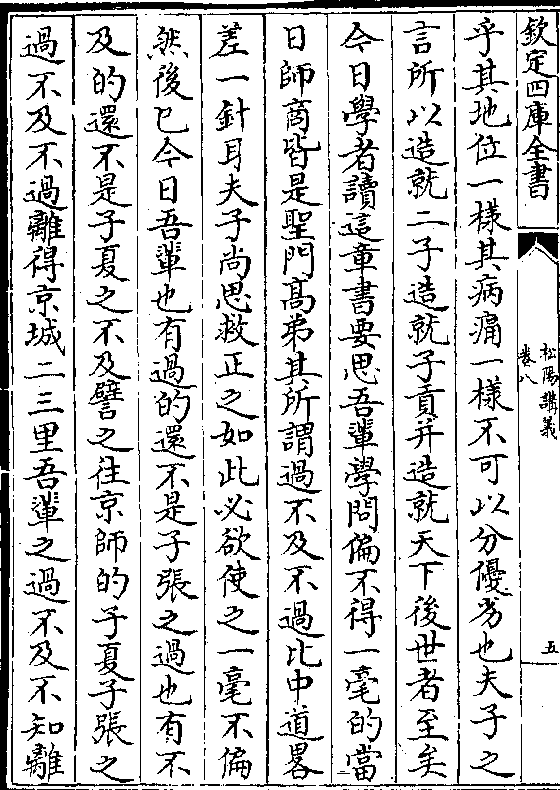 欽定四庫全書
松陽講義
卷八
五
乎其地位一樣其病痛一樣不可以分優劣也夫子之
言所以造就二子造就子貢并造就天下後世者至矣
今日學者讀這章書要思吾輩學問偏不得一毫的當
日師商皆是聖門髙弟其所謂過不及不過比中道畧
差一針耳夫子尚思救正之如此必欲使之一毫不偏
然後已今日吾輩也有過的還不是子張之過也有不
及的還不是子夏之不及譬之往京師的子夏子張之
過不及不過離得京城二三里吾輩之過不及不知離